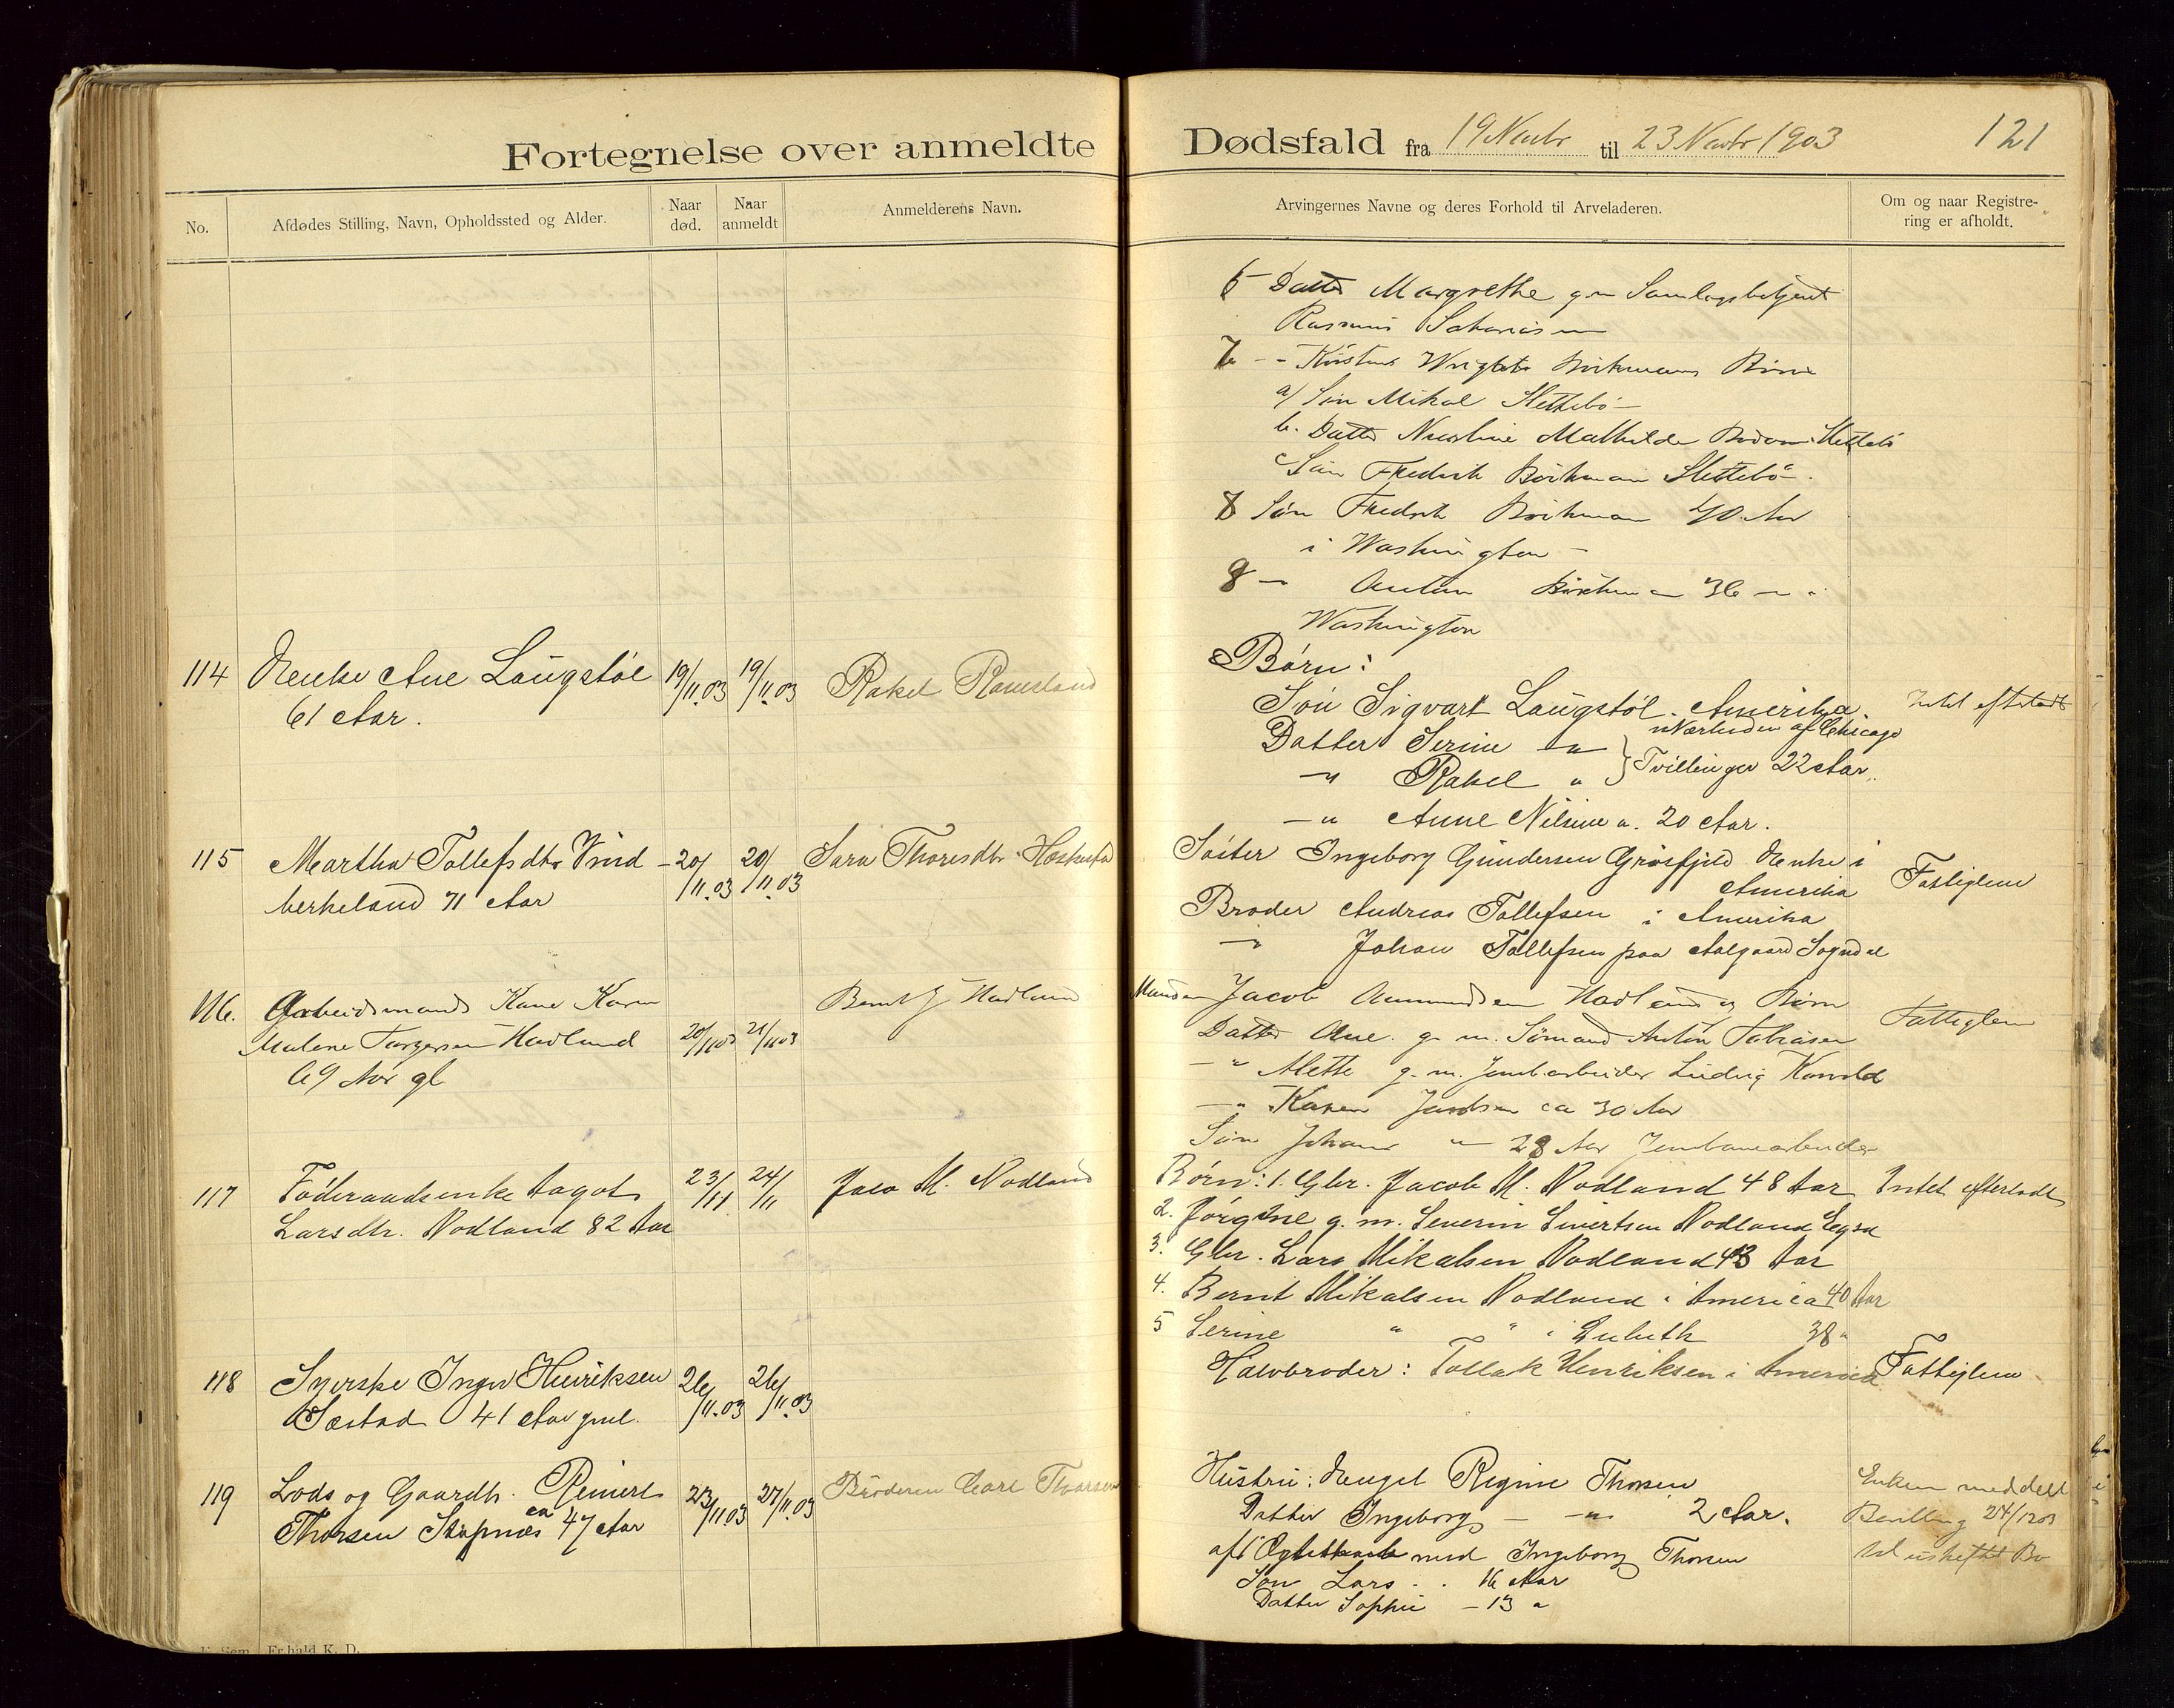 Fortegnelse over anmeldte Dødsfald fra 19 Novbr til 23 Novbr 1903
121
No.
Afdødes Stilling, Navn, Opholdssted og Alder.
Naar død.
Naar anmeldt
Anmelderens Navn.
Arvingernes Navne og deres Forhold til Arveladeren.
Om og naar Registre-
ring er afholdt.
6 Datter Margrethe g m Samlagsbetjent
Rasmus
7
a/ Søn Mikal Slettebø
b. Datter Mathilde Slettebø
c Søn Fredrik Slettebø
8 Søn Fredrik 40 Aar
i Washington
9 Anton 36
Washington
114 Enke Ane Laugstøl
61 Aar.
19/11.03
19/11.03
Rakel
Børn:
Søn Sigvart Laugstøl. Amerika
i Nærheden af Chicago
Datter Serine — "
— " Rakel "
Tvillinger 22 Aar.
— " Anne Niline ". 20 Aar.
Intet efterladt
115 Martha Tollefsdtr Vind-
berkeland 71 Aar
20/11.03
20/11.03
Sara Thoresdtr
Søster Ingeborg Gundersen Grøsfjeld Enke i
Amerika
Broder Andreas Tollefsen i Amerika
— " Johan Tollefsen paa Aalgaard Sogndal
Fattiglem
116. Arbeidsmands Kone Karen
Malene Torgersen Hadland
69 Aar gl
20/1103
21/1103
Bernt J Hadland
Manden Jacob Aanundsen Hadland og Børn
Datter Ane. g. m. Sømand Anton Tobiasen
— " Mette g. m. Jernb.arbeider Ludvig
— " Karen Jacobsen ca 30 Aar
Søn Johan " 28 Aar Jernbanearbeider
Fattiglem
117 Føderaadsenke Aagot
Larsdtr. Nodland 82 Aar
23/11
24/11
Jaco M. Nodland
Børn: 1. Gbr. Jacob M. Nodland 48 Aar
2. Jørgine g. m. Severin Sivertsen Nodland Egsd
3. Gbr. Lars Mikalsen Nodland 43 Aar
4. Bernt Mikalsen Nodland i America 40 Aar
5 Serine " " i Duluth 38 "
Intet efterladt
118 Syerske Inger Henriksen
Sæstad 41 Aar gml.
26/11.03
26/11.03
Halvbroder: Tollak Henriksen i America
Fattiglem
119 Lods og Gaardbr. Reinert
Thorsen Skapnæs ca 47 Aar
23/11.03
27/11.03
Broderen Carl Thorsen
Hustru: Engel Regine Thorsen
Datter Ingeborg — — " 2 Aar.
aft Ægteskab med Ingeborg Thorsen
Søn Lars . . 16 Aar
Datter Sophie — 13 "
Enken meddelt
Bevilling 24/1203
til uskiftet Bo